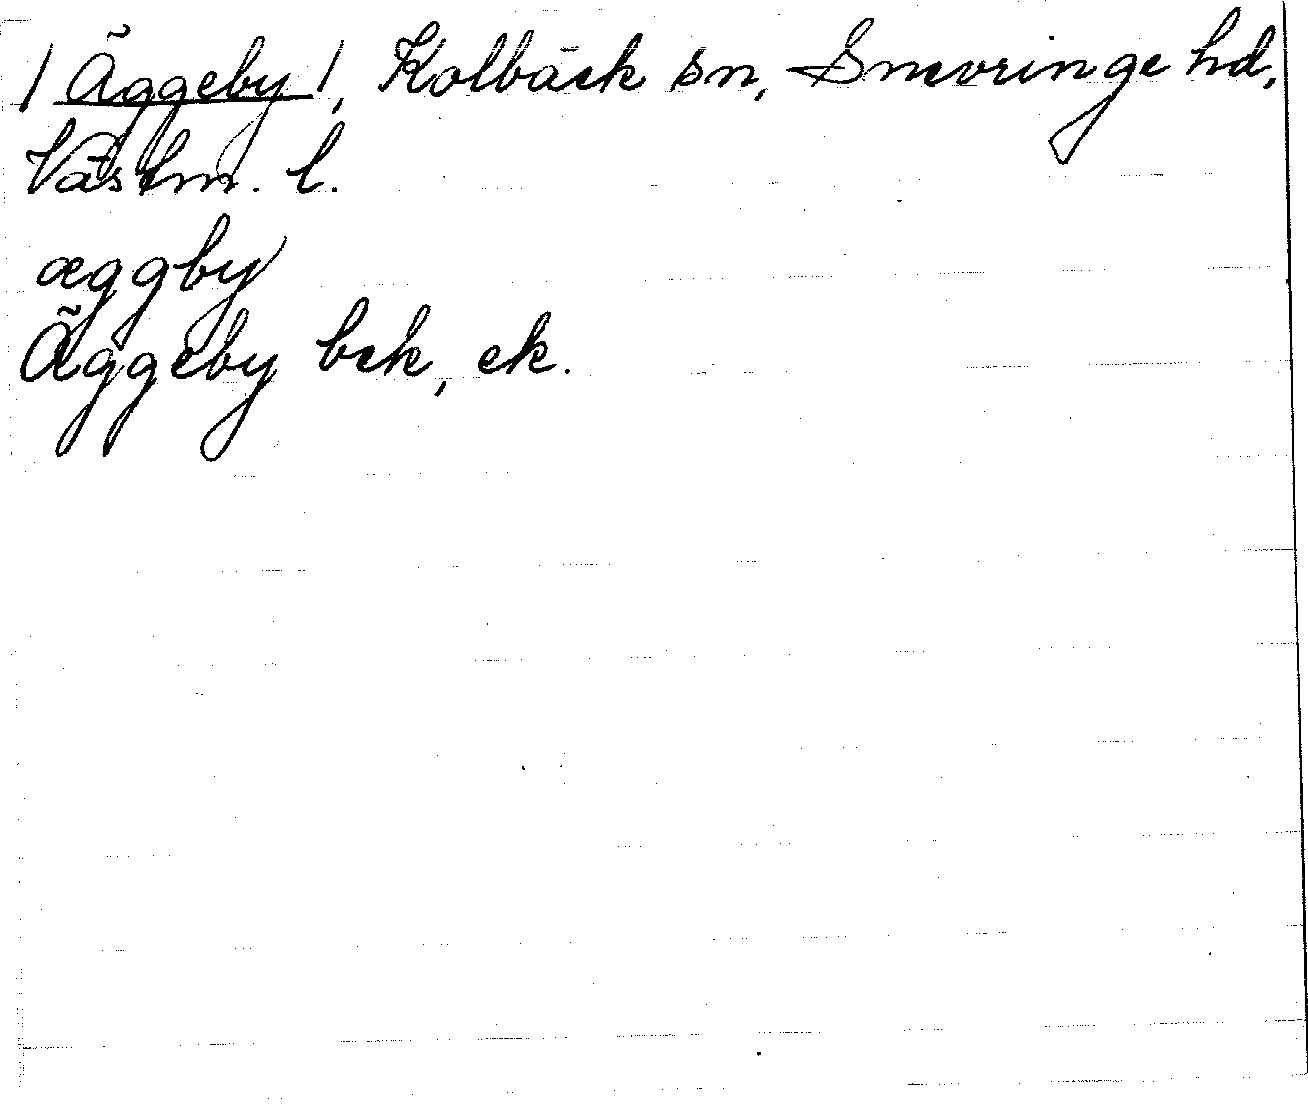 /Äggeby/, Kolbäck sn, Snevringe hd,
Västm. l.
æggby
Äggeby bek, ek.